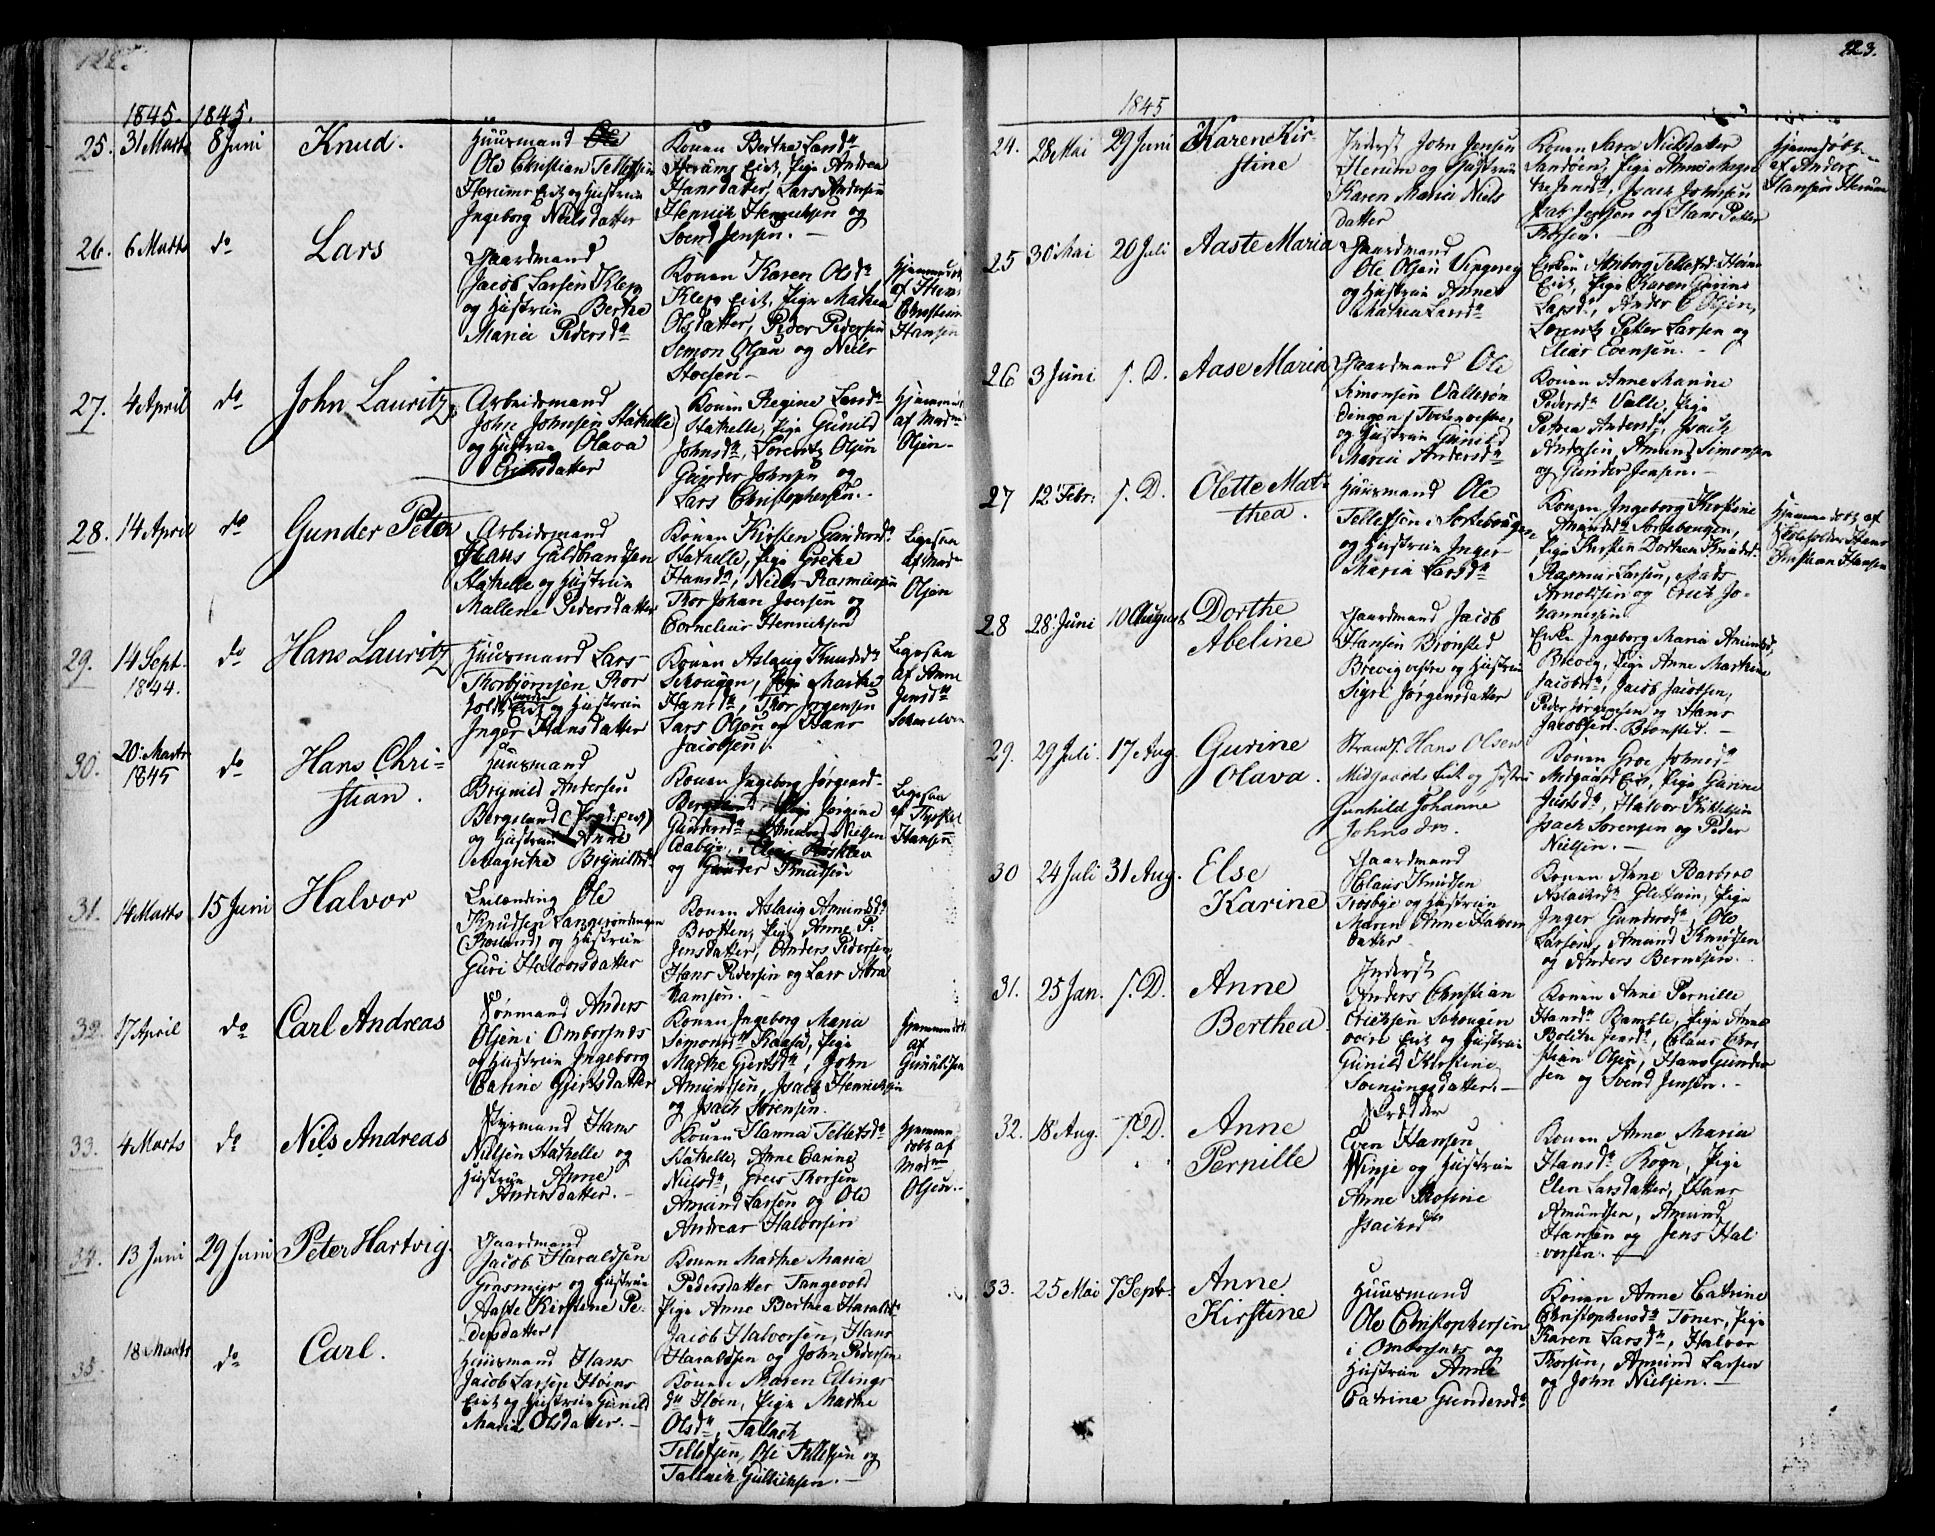 122.
1845. 1845.
25. 31 Marts 8 Juni Knud.
Huusmand
Ole Christian Tellefsen
Herums Eie og Hustrue
Ingeborg Nielsdatter
Konen Berthe Larsdr
Herums Eiet, Pige Andrea
Hansdatter, Lars Andersen
Henrik Henriksen og
Svend Jensen. —
26. 6 Marts do Lars
Gaardmand
Jacob Larsen Klep
og Hustrue Berthe
Maria Pedersdr
Konen Karen Olsdr
Klep Eiet, Pige Mathea
Olsdatter, Peder Pedersen
Simon Olsen og Niels
Hjemmedøbt
af Hans
Christian
Hansen
27. 4 April do John Lauritz
Arbeidsmand
John Johnsen Stathelle
og Hustrue Olava
Erichsdatter
Konen Regine Larsdr
Stathelle, Pige Gunild
Johnsdr, Lorentz Olsen
Gunder Johnsen og
Lars Christophersen. —
Hjemmed
af Madm
Olsen —
28. 14 April do Gunder Peter
Arbeidsmand
Hans Guldbrandsen
Stathelle og Hustrue
Mallene Pedersdatter
Konen Kirsten Gundersdr
Stathelle, Pige Grethe
Hansdr, Niels Rasmussen
Thor Johan Iversen og
Cornelius Henriksen
Ligesaa
af Mad
Olsen
29. 14 Sept. 1844. do Hans Lauritz
Huusmand Lars
Thorbjørnsen
Eiet og Hustrue
Inger Hansdatter
Konen Aslaug Knudsdr
Schougen, Pige Marthe
Hansdr, Thor Jørgensen
Lars Olsen og Hans
Jacobsen.
Ligesaa
af Anne
Jensdr
30. 20 Marts 1845 do Hans Christian.
Huusmand
Brynild Andersen
Bergsland
og Hustrue Anne
Magrethe Brynildsdr
Konen Ingeborg Jørgensdr
Pige Jørgine
Gundersdr Amund Nielsen
og Gunder Knudsen
Ligesaa
af
Hansen
31. 14 Marts 15 Juni Halvor
Leilænding Ole
Knudsen Langerøndingen
og Hustrue
Guri Halvorsdatter
Konen Aslaug Amundsdr
Brotten, Pige Anne P.
Jensdatter, Anders Pedersen
Hans Pedersen og Lars Abra
hamsen.
32. 17 April do Carl Andreas
Sømand Anders
Olsen i Omborsnes
og Hustrue Ingeborg
Cathrine Giertsdatter
Konen Ingeborg Maria
Simonsdr Raasa, Pige
Marthe Giertsdr, John
Amundsen, Isach Henriksen
og Isach Sørensen.
Hjemmedøbt
af
33. 4 Marts do Nils Andreas
Styrmand Hans
Nielsen Stathelle og
Hustrue Anne
Andersdatter. —
Konen Hanna Tellefsdr
Stathelle, Anne Carine
Nielsdr, Thorsen
Amund Larsen og Ole
Andreas Halvorsen
Hjemme
døbt af
Madm
Olsen. —
34. 13 Juni 29 Juni Peter Hartvig.
Gaardmand
Jacob Haraldsen
Grasmyr og Hustrue
Aaste Kirstene Pe-
dersdatter
Konen Marthe Maria
Pedersdatter Tangevold
Pige Anne Berthea Haralds
Jacob Halvorsen, Hans
Haraldsen og John Pedersen
35. 18 Marts do Carl.
Huusmand Hans
Jacob Larsen Høins
Eiet og Hustrue Gunild
Maria Olsdatter. —
Konen Maren Ellings
dr Høen, Pige Marthe
Olsdr, Tallach
Tellefsen, Ole Tellefsen og
Tallach Gullichsen. —
123.
1845
24. 28 Mai 29 Juni Karen Kir-
stine
Inderst John Jensen
Herum og Hustrue
Karen Maria Niels
datter
Konen Sara Nielsdatter
Isach Johnsen
og Hans Petter
Thorsen. —
Hjemmedøbt
af Anders
Hansen Herum
25 30 Mai 20 Juli Aaste Maria
Gaardmand
Ole Olsen
og Hustrue Anne
Mathea Larsdr
Enken Anborg Tellefsd. Høins
Eiet, Pige Karen Carine
Larsdr, Anders C Olsen,
Lorentz Petter Larsen og
Evensen. —
26 3 Juni s. D. Aase Maria
Gaardmand Ole
Simonsen Vallerøn
dingen
og Hustrue Gunild
Maria Andersdr
Konen Anne Marine
Pedersdr Valle, Pige
Petrea Andersdr, Isach
Andersen, Amund Simonsen
og Gunder Jensen. —
27 12 Febr. s. D. Olette Mat-
thea.
Huusmand Ole
Tellefsen i
og Hustrue Inger
Maria Larsdr
Konen Ingeborg Kirstine
Amundsdr
Pige Kirsten Dorthea Knudsdr
Rasmus Larsen, Mads
Arnoldsen og Erich Jo-
hannesen.
Hjemmedøbt af
Skoleholder Hans
Christian Hansen
28 28 Juni 10 August Dorthe
Abeline
Gaardmand Jacob
Hansen Brønsted
Brevig vestre og Hustrue
Sigri Jørgensdatter
Enke Ingeborg Maria Amundsd.
Brevig, Pige Anne Marthene
Jacobsdr, Jacob Jacobsen,
Peder Jørgensen og Hans
Jacobsen Brønsted. —
29. 29 Juli 17 Aug. Gurine
Olava.
Strands. Hans Olsen
Midgaards Eiet og Hustru
Gunhild Johanne
Johnsdr.
Konen Groe Johnsdr
Midgaard Eiet, Pige Gurine
Justsdr, Halvor Kittelsen
Isach Sørensen og Peder
Nielsen. —
30 24 Juli 31 Aug. Else
Karine
Gaardmand
Claus Knudsen
Trosbye og Hustrue
Maren Anne Halvors
datter
Konen Anne Barbroe
Aslachsdr Gletnen, Pige
Inger Gundersdr, Ole
Larsen, Amund Knudsen
og Anders Berntsen.
31. 25 Jan. s. D. Anne
Berthea.
Inderst
Anders Christian
Erichsen Schougen
øvre Eiet og Hustrue
Gunild Kirstine
Svenungsdatter. —
Konen Anne Pernille
Hansdr Bamble, Pige Anne
Bolette Jensdr, Claus Chri
stian Olsen, Hans Gunder
sen og Svend Jensen. —
32. 18 Aug. s. D. Anne
Pernille
Skrædder
Even Hansen
Winje og Hustrue
Anne Rosine
Isachsdr
Konen Anne Maria
Hansdr Rogn, Pige
Elen Larsdatter, Hans
Amundsen, Amund
Hansen og Jens Hal
vorsen. —
33. 25 Mai 7 Septr Anne
Kirstine
Huusmand
Ole Christophersen
i Omborsnes og
Hustrue Anne
Catrine Gundersdr
Konen Anne Catrine
Christophersdr Toner, Pige
Karen Larsdr, Halvor
Thorsen, Amund Larsen
og John Nielsen. —